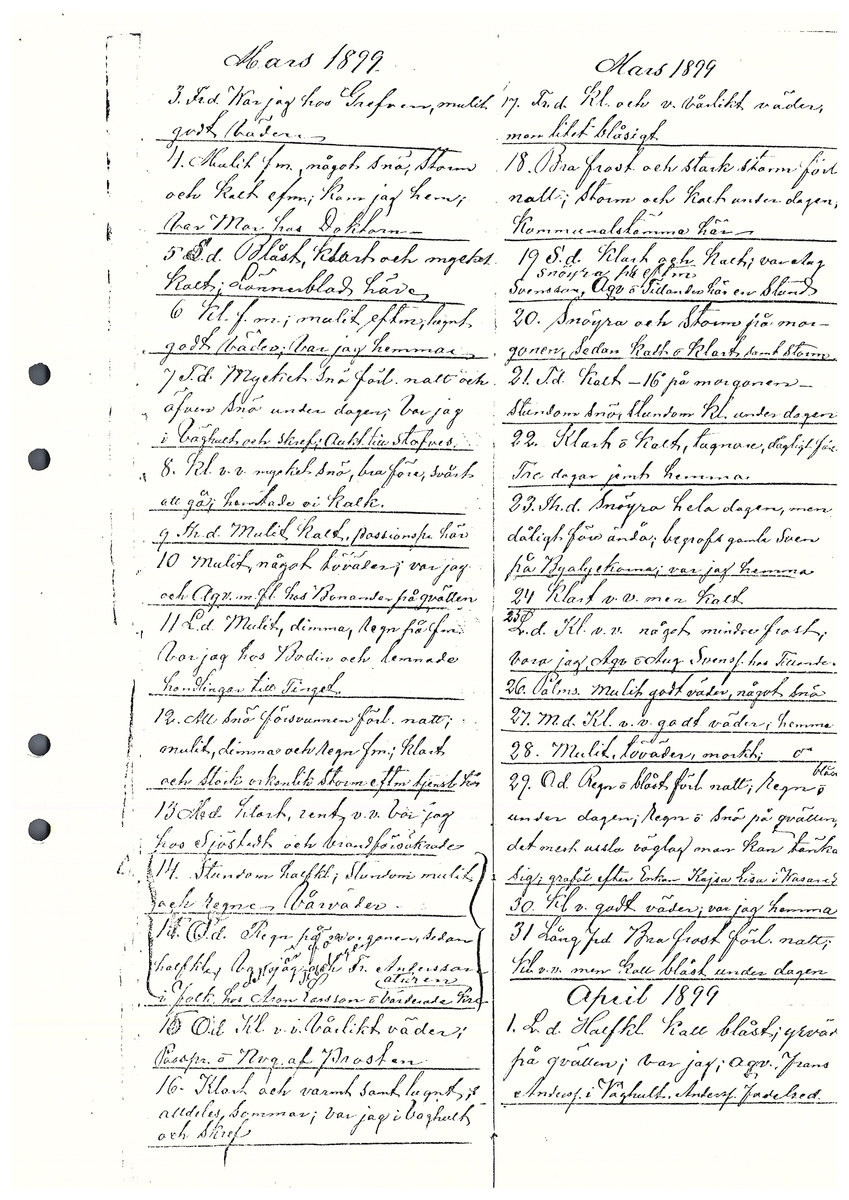 Mars 1899
3. Frd. War jag hos Grefven, mulit
godt väder
4. Mulit fm., något snö, storm
och kalt efm; kom jag hem;
var Mor hos Doktorn
5 S.d. Blåst, klart och mycket
kalt; Lönnerblad häre
6 Kl. f.m.; mulit eftm, lugnt
godt väder; var jag hemma
7 T.d. Myckét snö förl. natt och
äfven snö under dagen; var jag
i Våghult och skref; Aukt. till Stofves.
8. Kl. v.v. mycket snö, bra före, svårt
att gå; hemtade vi kalk.
9 Th.d. Mulit kalt, passionspr. här
10 Mulit, något töväder; var jag
och Agv. m.fl. hos Bonander på qvällen
11 L.d. Mulit, dimma, regn på fm.
var jag hos Bodin och lemnade
handlingar till Tinget
12. All snö försvunnen förl. natt;
mulit, dimma och regn fm; klart
och stark orkanlik storm eftm
13 Md. klart, rent, v.v. var jag
hos Sjöstedt och brandförsäkrade
14. Stundom halfkl; stundom mulit
och regne, Vårväder.
Od. Regn på morgonen, sedan
halfkl, var jag och Fr. Andersson
hos Aron Larsson o värderade
15 Od Kl v.v. Vårlikt väder;
Passpr. o Nvg. af Brosten
16. Klart och varmt samt lugnt,
alldeles sommar; var jag i Våghult
och skref
Mars 1899
17. Fr.d. Kl. och v. vårlikt väder,
men litet blåsigt
18. Bra frost och stark storm förl
natt; storm och kalt under dagen;
Kommunalstämma här
19 S.d. Klart och kalt; var Aug
snöyra på eftm
Svensson, Agv o Tillander här en stund
20. Snöyra och storm på mor-
gonen, sedan kalt o klart samt storm
21. T.d. Kalt -16 på morgonen -
stundom snö, stundom kl. under dagen
22. Klart o kalt, lugnare, dåligt före.
Tre dagar jemt hemma
23. Th.d. Snöyra hela dagen, men
dåligt före ändå; begrofs gamle Sven
på Byalyckorna; var jag hemma
24 Klart v.v. men kalt
25 L.d. Kl. v.v. något mindre frost;
voro jag Agv o Aug Svensf. hos Tillander
26. Palms. Mulit godt väder, något snö
27. M.d. Kl. v.v. godt väder; hemma
28. Mulit, töväder, morkt;
29. Od. Regn o blåst förl natt; regn o blåst
under dagen; regn o snö på qvällen,
det mest ussla väglag man kan tänka
sig; graföl efter Enkan Kajsa Lisa i
30. Kl v. godt väder; var jag hemma
31 Lång frd Bra frost förl. natt;
Kl. v.v. men kall blåst under dagen
April 1899
1. L.d. Halfkl kall blåst;
på qvällen; var jag; Agv. Frans
Andersf. i Våghult. Andersf.